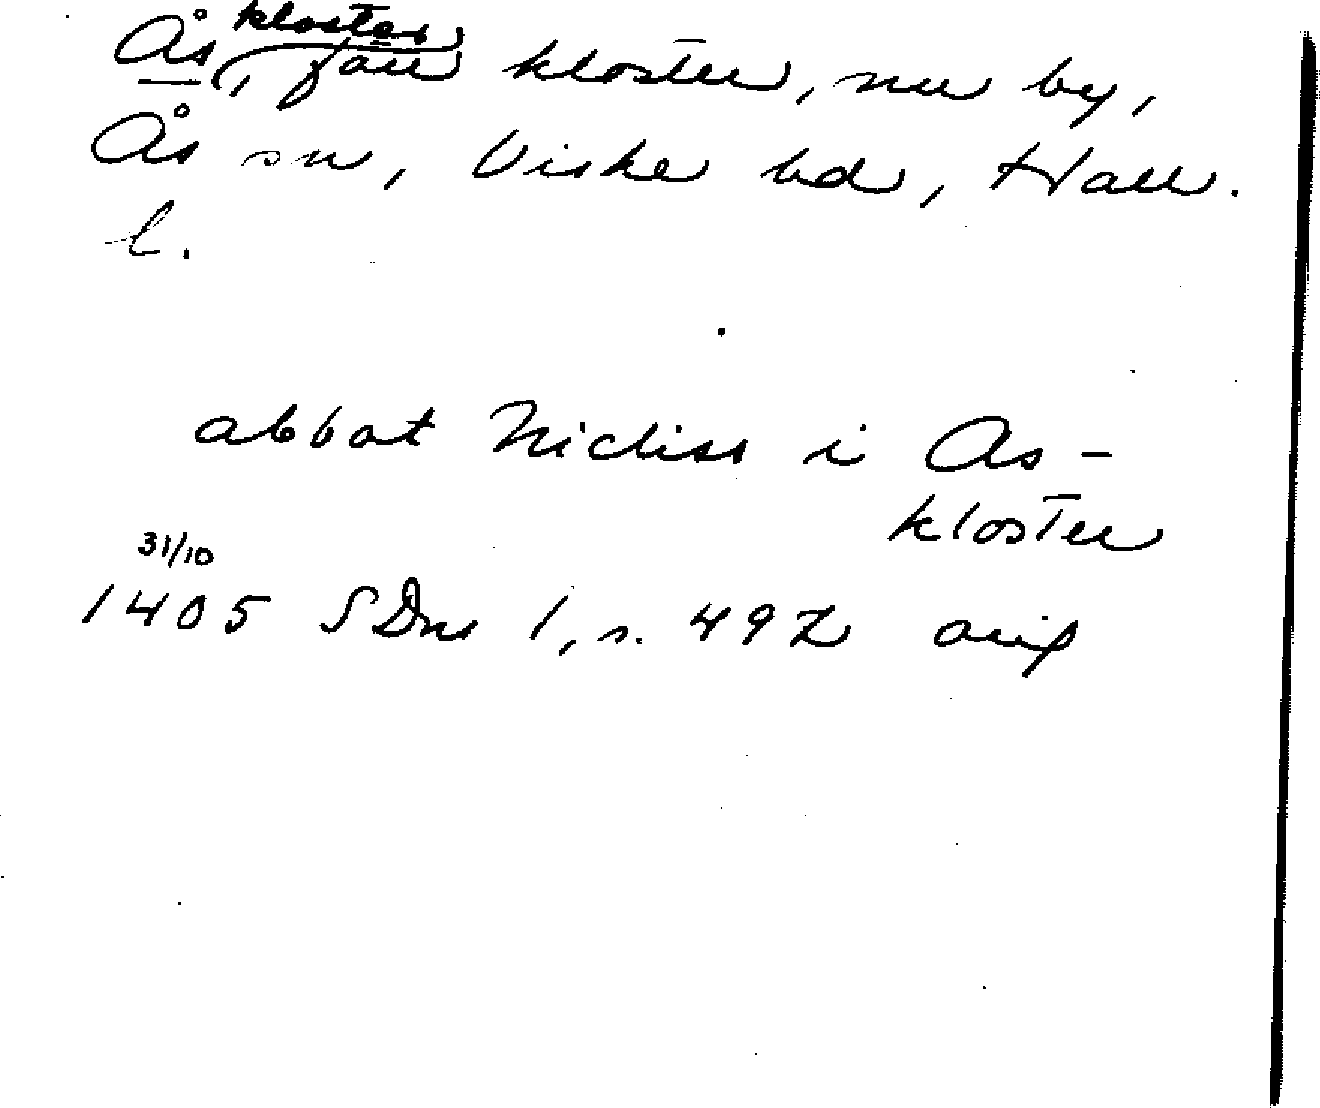 Åskloster, förr kloster, nu by,
Ås sn, Viske hd, Hall.
l.
abbat Nicliss i As-
kloster
31/10
1405 SDns 1, s. 492 avs